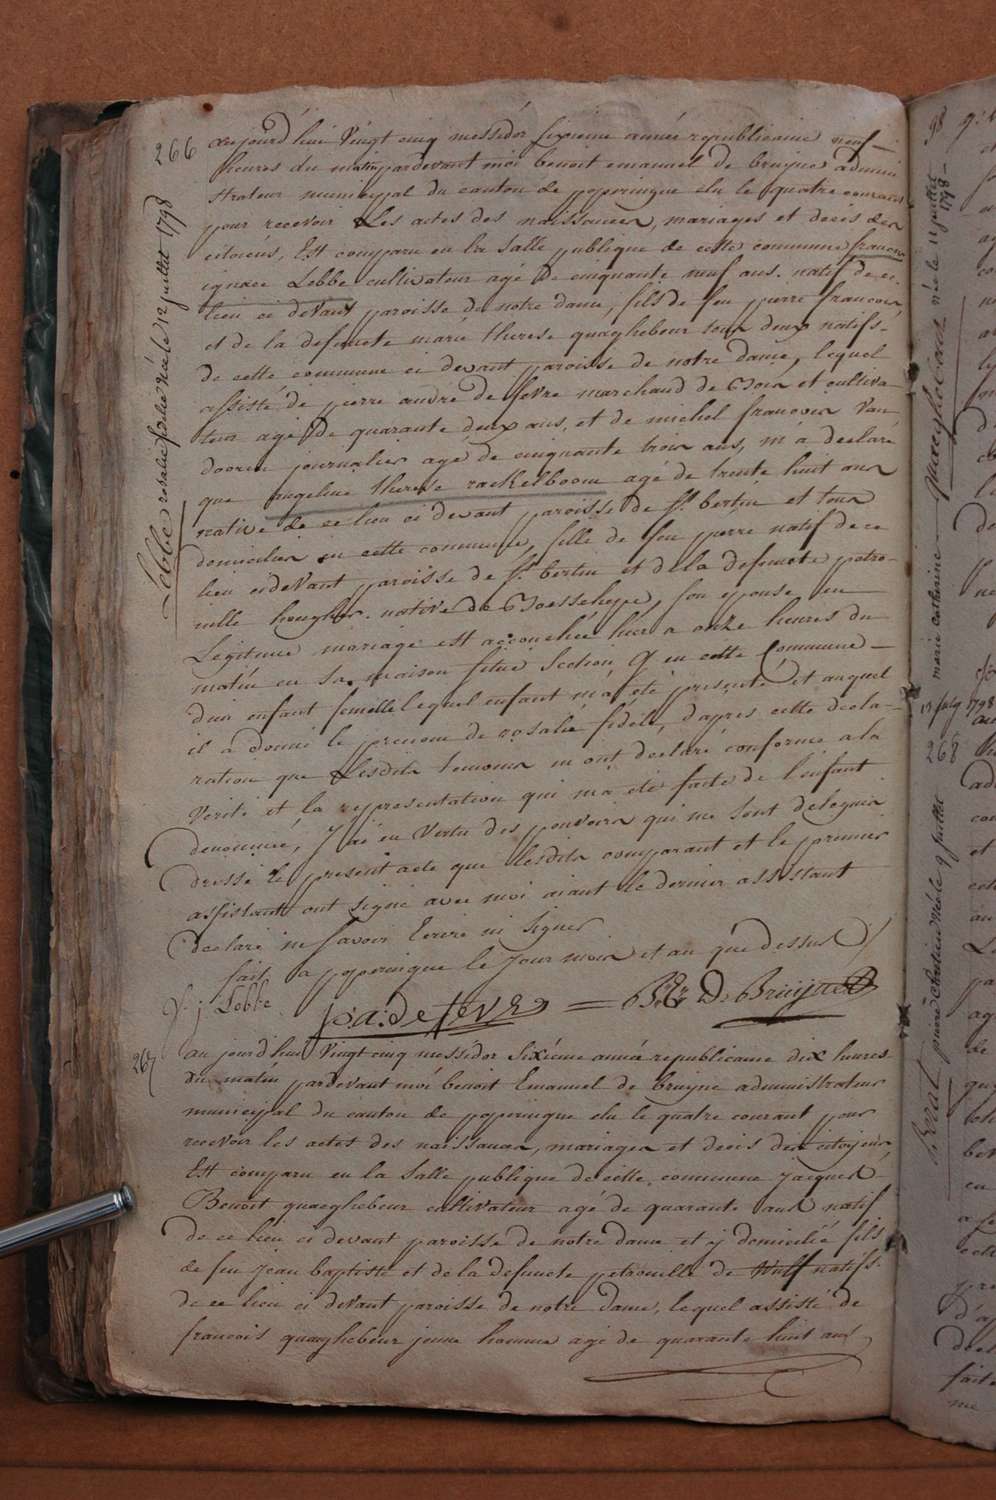 266
aujourd'hui vingt cinq messidor sixieme année republicaine neuf
heures du matin pardevant moi benoit emanuel de bruyne adminis
trateur municipal du canton de poperingue élu le quatre courant
pour recevoir Les actes des naissances, mariages et décès des
citoiens, Est comparu en la Salle publique de cette commune francois
ignace Lebbe cultivateur agé de cinquante neuf ans. natif de ce
lieu ci devant paroisse de notre dame, fils de feu pierre francois
et de la defuncte marie therese quaghebeur tous deux natifs
de cette commune ci devant paroisse de notre dame, lequel
assisté de pierre andré de fevre marchand de Bois et cultiva
teur agé de quarante deux ans, et de michel francois van
dooren journalier agé de cinquante trois ans, m'a declaré
que angeline therese rackelboom agé de trente huit ans
native de ce lieu ci devant paroisse de St. bertin et tous
domiciliés en cette commune, fille de feu pierre natif de ce
lieu cidevant paroisse de St. bertin et de la defuncte petro
nille native de Boesschepe, son epouse en
Légitime mariage est accouchée hier a onze heures du
matin en sa maison situé Section q en cette Commune
d'un enfant femelle lequel enfant m'a été presenté et auquel
il a donné le prenom de rosalie fidele, d'apres cette décla
ration que Lesdits temoins m'ont déclaré conforme a la
verité et la representation qui m'a été faite de l'enfant
denommé, J'ai en vertu des pouvoirs qui me sont delegués
dressé le present acte que lesdits comparant et le premier
assistant ont signé avec moi aiant le dernier assistant
declaré ne savoir Ecrire ni Signer
fait a poperingue le jour mois et an que dessus
f. j Lebbe p: a: de fevre = B: E: De Bruyne
Lebbe rosalie fidelle née le 12 juillet 1798
267
au jourd'hui Vingt cinq messidor Sixième année republicaine dix heures
du matin pardevant moi benoit Emanuel de bruyne administrateur
municipal du canton de poperingue elu le quatre courant pour
recevoir les actes des naissances, mariages et décès des citoyens,
Est comparu en la Salle publique de cette commune jacques
Benoit quaeghebeur cultivateur agé de quarante ans natif
de ce lieu ci devant paroisse de notre dame et y domicilié fils
de feu jean baptiste et de la defuncte petronille de Wulf natifs
de ce lieu ci devant paroisse de notre dame, lequel assisté de
francois quaeghebeur jeune homme agé de quarante huit ans,
98
Quaeghebeur marie catherine née le 11 juillet 1798
13 July 1798
268
pierre née le 9 juillet